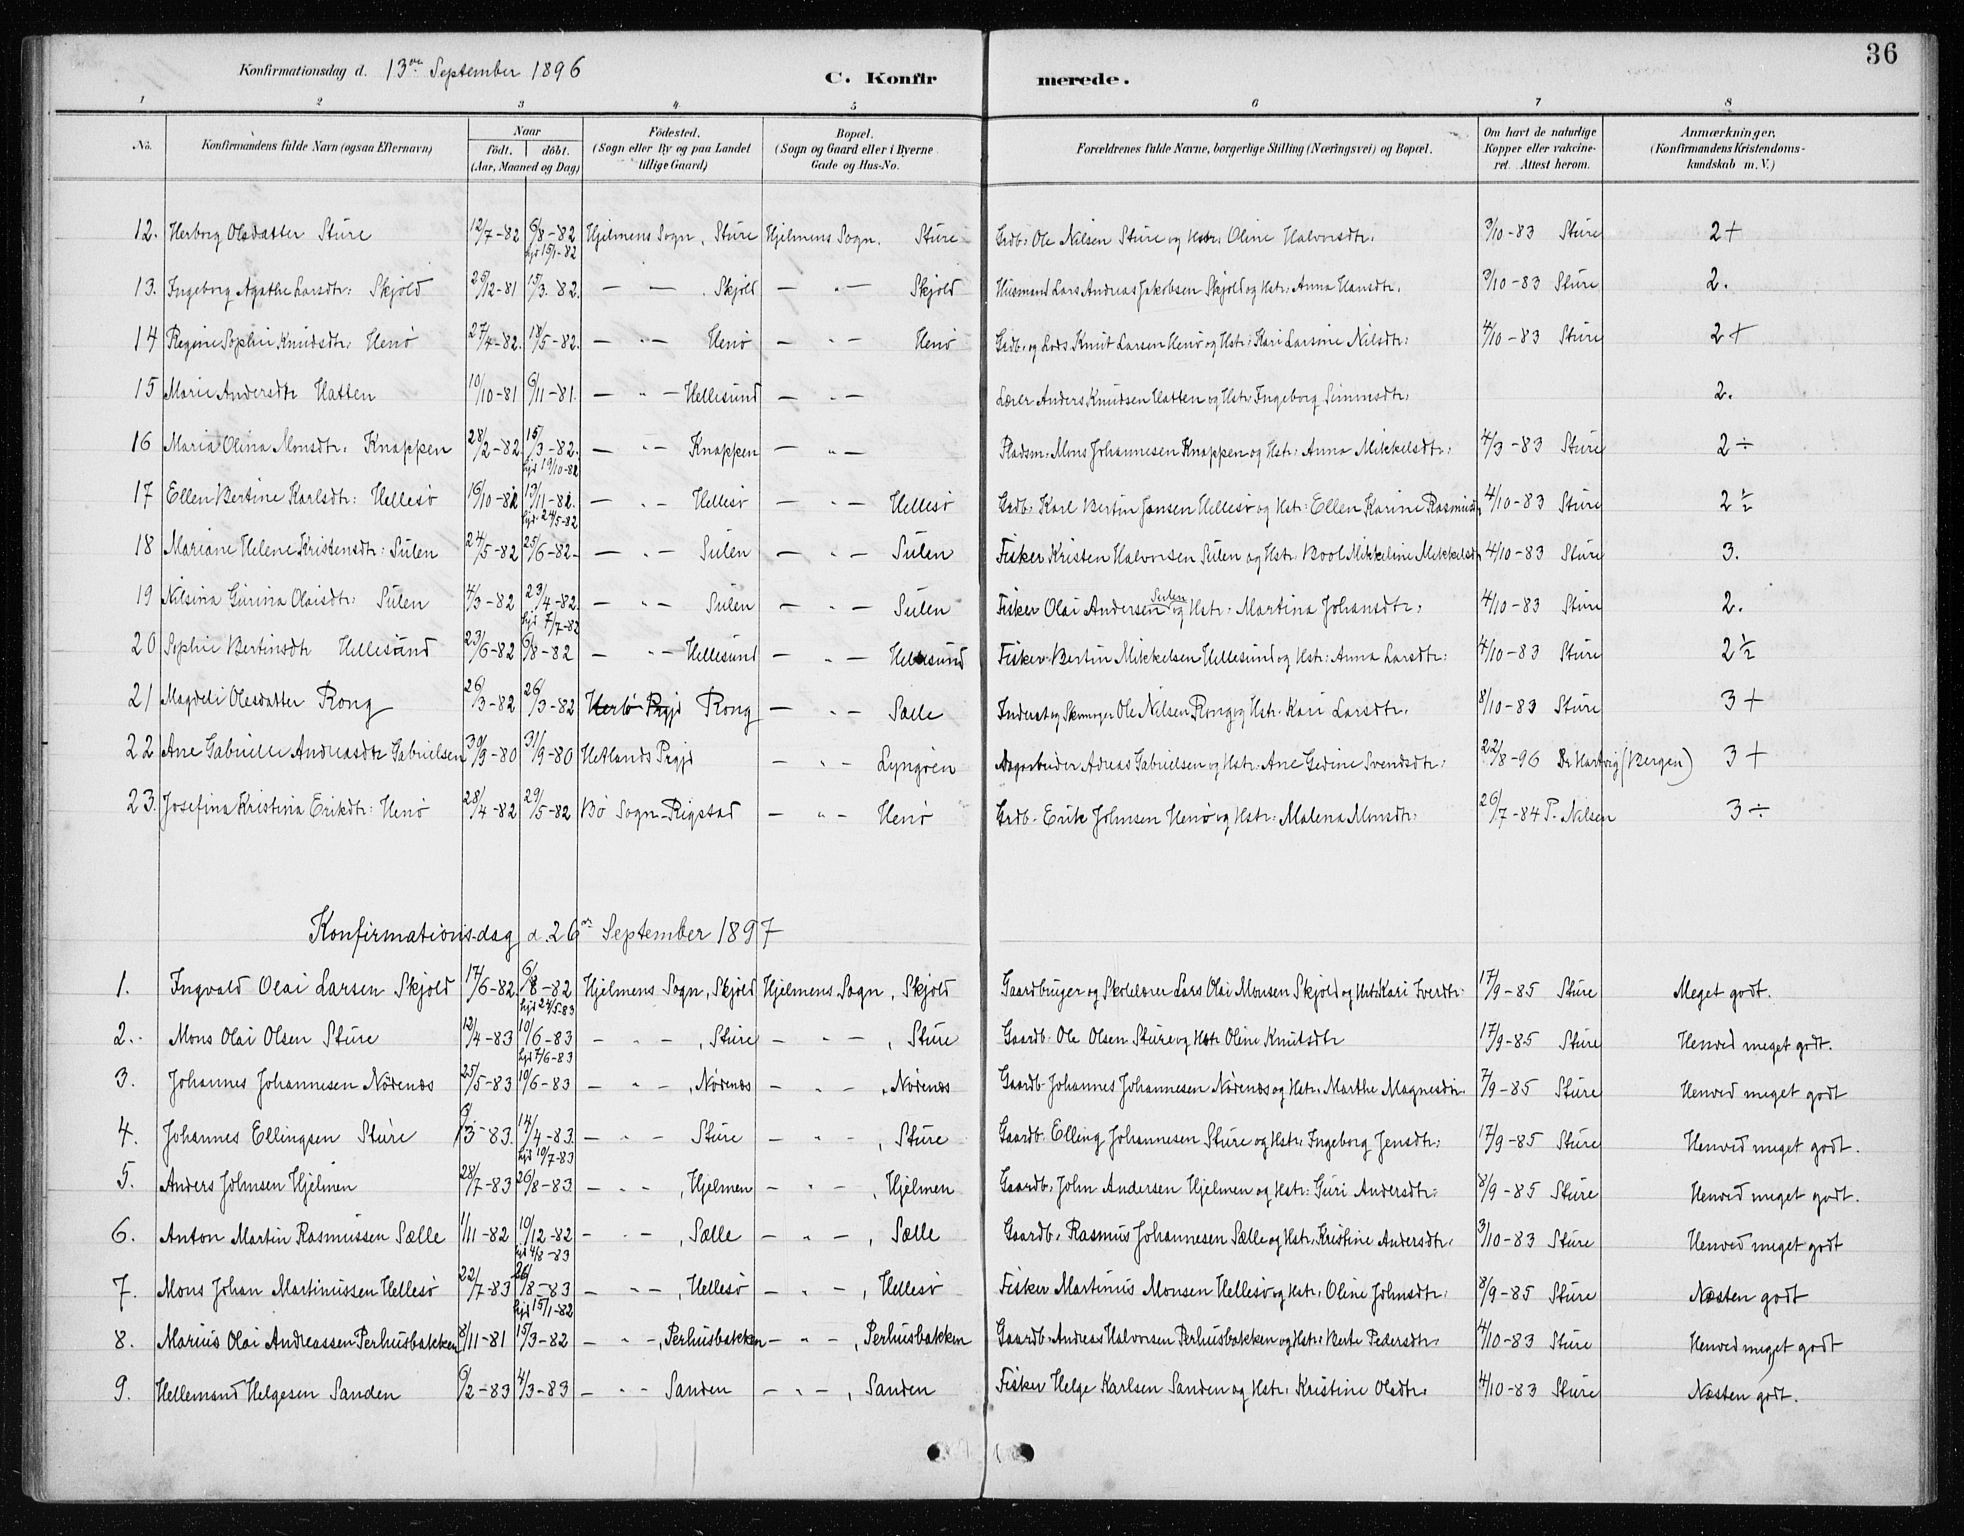 36
Konfirmationsdag d. 13de September 1896
C. Konfirmerede.
1 2 3 4 5 6 7 8
No. Konfirmandens fulde Navn (ogsaa Efternavn) Naar födt. döbt. (Aar, Maaned og Dag) Födested. (Sogn eller By og paa Landet tillige Gaard) Bopæl. (Sogn og Gaard eller i Byerne Gade og Hus-No. Forældrenes fulde Navne, borgerlige Stilling (Næringsvei) og Bopæl. Om havt de naturlige Kopper eller vakcineret. Attest herom. Anmærkninger. (Konfirmandens Kristendomskundskab m. V.)
12. Herborg Olsdatter Sture 12/7-82 6/8-82 Hjelmens Sogn, Sture Hjelmens Sogn, Sture Grdb: Ole Nilsen Sture og Hstr: Oline Halvorsdtr. 3/10-83 Sture 2+
13. Ingeborg Agathe Larsdtr: Skjold 25/12-81 hjd 15/1-82 15/3-82. — — . Skjold — . — Skjold Husmand Lars Andreas Jakobsen Skjold og Hstr: Anna Hansdtr. 3/10-83 Sture 2.
14 Regine Sophie Knudsdtr: Henø 27/4-82. 18/5-82. — " — Henø — " — Henø Grdb. og Lods Knut Larsen Henø og Hstr: Kari Larsine Nilsdtr: 4/10-83 Sture 2+
15 Marie Andersdtr Hatten 10/10-81 6/11-81. — " — Hellesund — " — Lærer Anders Knudsen Hatten og Hstr: Ingeborg Simmsdtr. 2.
16 Maria Olina Monsdtr: Knappen 28/2-82 15/3-82. — " — Knappen — " — Pladsm: Mons Johannesen Knappen og Hstr: Anna Mikkelsdtr. 4/3-83 Sture 2÷
17 Ellen Bertine Karlsdtr: Hellesø 16/10-82 hjd 19/10-82 13/11-82. — " — Hellesø — " — Hellesø Grdb: Karl Bertin Jansen Hellesø og Hstr: Ellen Karine Rasmusd 4/10-83 Sture 2½
18 Mariane Helene Kristensdtr: Sulen 24/5-82 hjd. 24/5-82 25/6-82- — " — Sulen — " — Sulen Fisker Kristen Halvorsen Sulen og Hstr: Bool Mikkeline Mikkelsdtr 4/10-83 Sture 3.
19 Nilsina Gurina Olaisdtr: Sulen 4/3-82 23/4-82. — " — Sulen — " — Sulen Fisker Olai Andersen Sulen og Hstr: Martina Johansdtr. 4/10-83 Sture 2.
20 Sophie Bertinsdtr Hellesund 23/6-82 hjd 7/7-82 6/8-82 — " — Hellesund — " — Hellesund Fisker Bertin Mikkelsen Hellesund og Hstr: Anna Larsdtr: 4/10-83 Sture 2½
21 Magdeli Olesdatter Rong 26/3-82 26/3-82 Herlø Prgjd Rong — " — Sælle Inderst og Skomager Ole Nilsen Rong og Hstr: Kari Larsdtr. 8/10-83 Sture 3+
22 Ane Gabrielle Andreasdtr Gabrielsen 30/9-80 31/9-80 Hetlands Prgjd — " — Lyngøen Dagarbeider Adreas Gabrielsen og Hstr: Ane Gedine Svendsdtr: 22/8-96 Dr Hartvig (Bergen) 3+
23. Josefina Kristina Erikdtr: Henø 28/4-82 29/5-82 Bø Sogn-Rigstad — " — Henø Grdb. Erik Johnsen Henø og Hstr: Malena Monsdtr: 26/7-84 P. Nilsen 3÷
Konfirmationsdag d. 26de September 1897
1. Ingvald Olai Larsen Skjold 17/6-82. 6/8-82 Hjelmens Sogn, Skjold Hjelmens Sogn, Skjold Gaardbruger og Skolelærer Lars Olai Monsen Skjold og Hstr Kari Iverdtr: 17/9-85 Sture Meget godt.
2.. Mons Olai Olsen Sture 12/4-83 hjd 24/5-83 10/6-83 — " — , Sture — " — , Sture Gaardb. Ole Olsen Sture og Hstr Oline Knutsdtr 17/9-85 Sture Henved meget godt.
3. Johannes Johannesen Nørenæs 25/5-83 hjd 7/6-83 10/6-83 — " — , Nørenæs — " — , Nørenæs Gaardb. Johannes Johannesen Nørenæs og Hstr: Marthe Magnesdtr. 7/9-85 Sture Henved meget godt
4. Johannes Ellingsen Sture 9/3-83. 14/4-83. — " — Sture — " — , Sture Gaardb. Elling Johannesen Sture og Hstr: Ingeborg Jensdtr: 17/9-85 Sture Henved meget godt.
5. Anders Johnsen Hjelmen 28/7-83 hjd 10/7-83 26/8-83 — " — , Hjelmen — " — , Hjelmen Gaardb. John Andersen Hjelmen og Hstr: Guri Andersdtr: 8/9-85 Sture Henved meget godt.
6. Anton Martin Rasmussen Sælle 1/11-82 10/12-82 — " — , Sælle — " — , Sælle Gaardb. Rasmus Johannesen Sælle og Hstr: Kristine Andersdtr. 3/10-83 Sture Henved meget godt
7. Mons Johan Martinussen Hellesø 22/7-83 hjd 4/8-83 26/8-83 — " — , Hellesø — " — , Hellesø Fisker Martinus Monsen Hellesø og Hstr: Oline Johnsdtr. 8/9-85 Sture Næsten godt
8. Marius Olai Andreassen Perhusbakken 8/11-81 hjd 15/1-82 15/3-82 — " — , Perhusbakken — " — , Perhusbakken Gaardb. Andreas Halvorsen Perhusbakken og Hstr: Berte Pedersdtr. 4/10-83 Sture Henved meget godt
9. Hellemand Helgesen Sanden 9/2-83 4/3-83 — " — Sanden — " — , Sanden Fisker Helge Karlsen Sanden og Hstr: Kristine Olsdtr. 4/10-83 Sture Næsten godt.